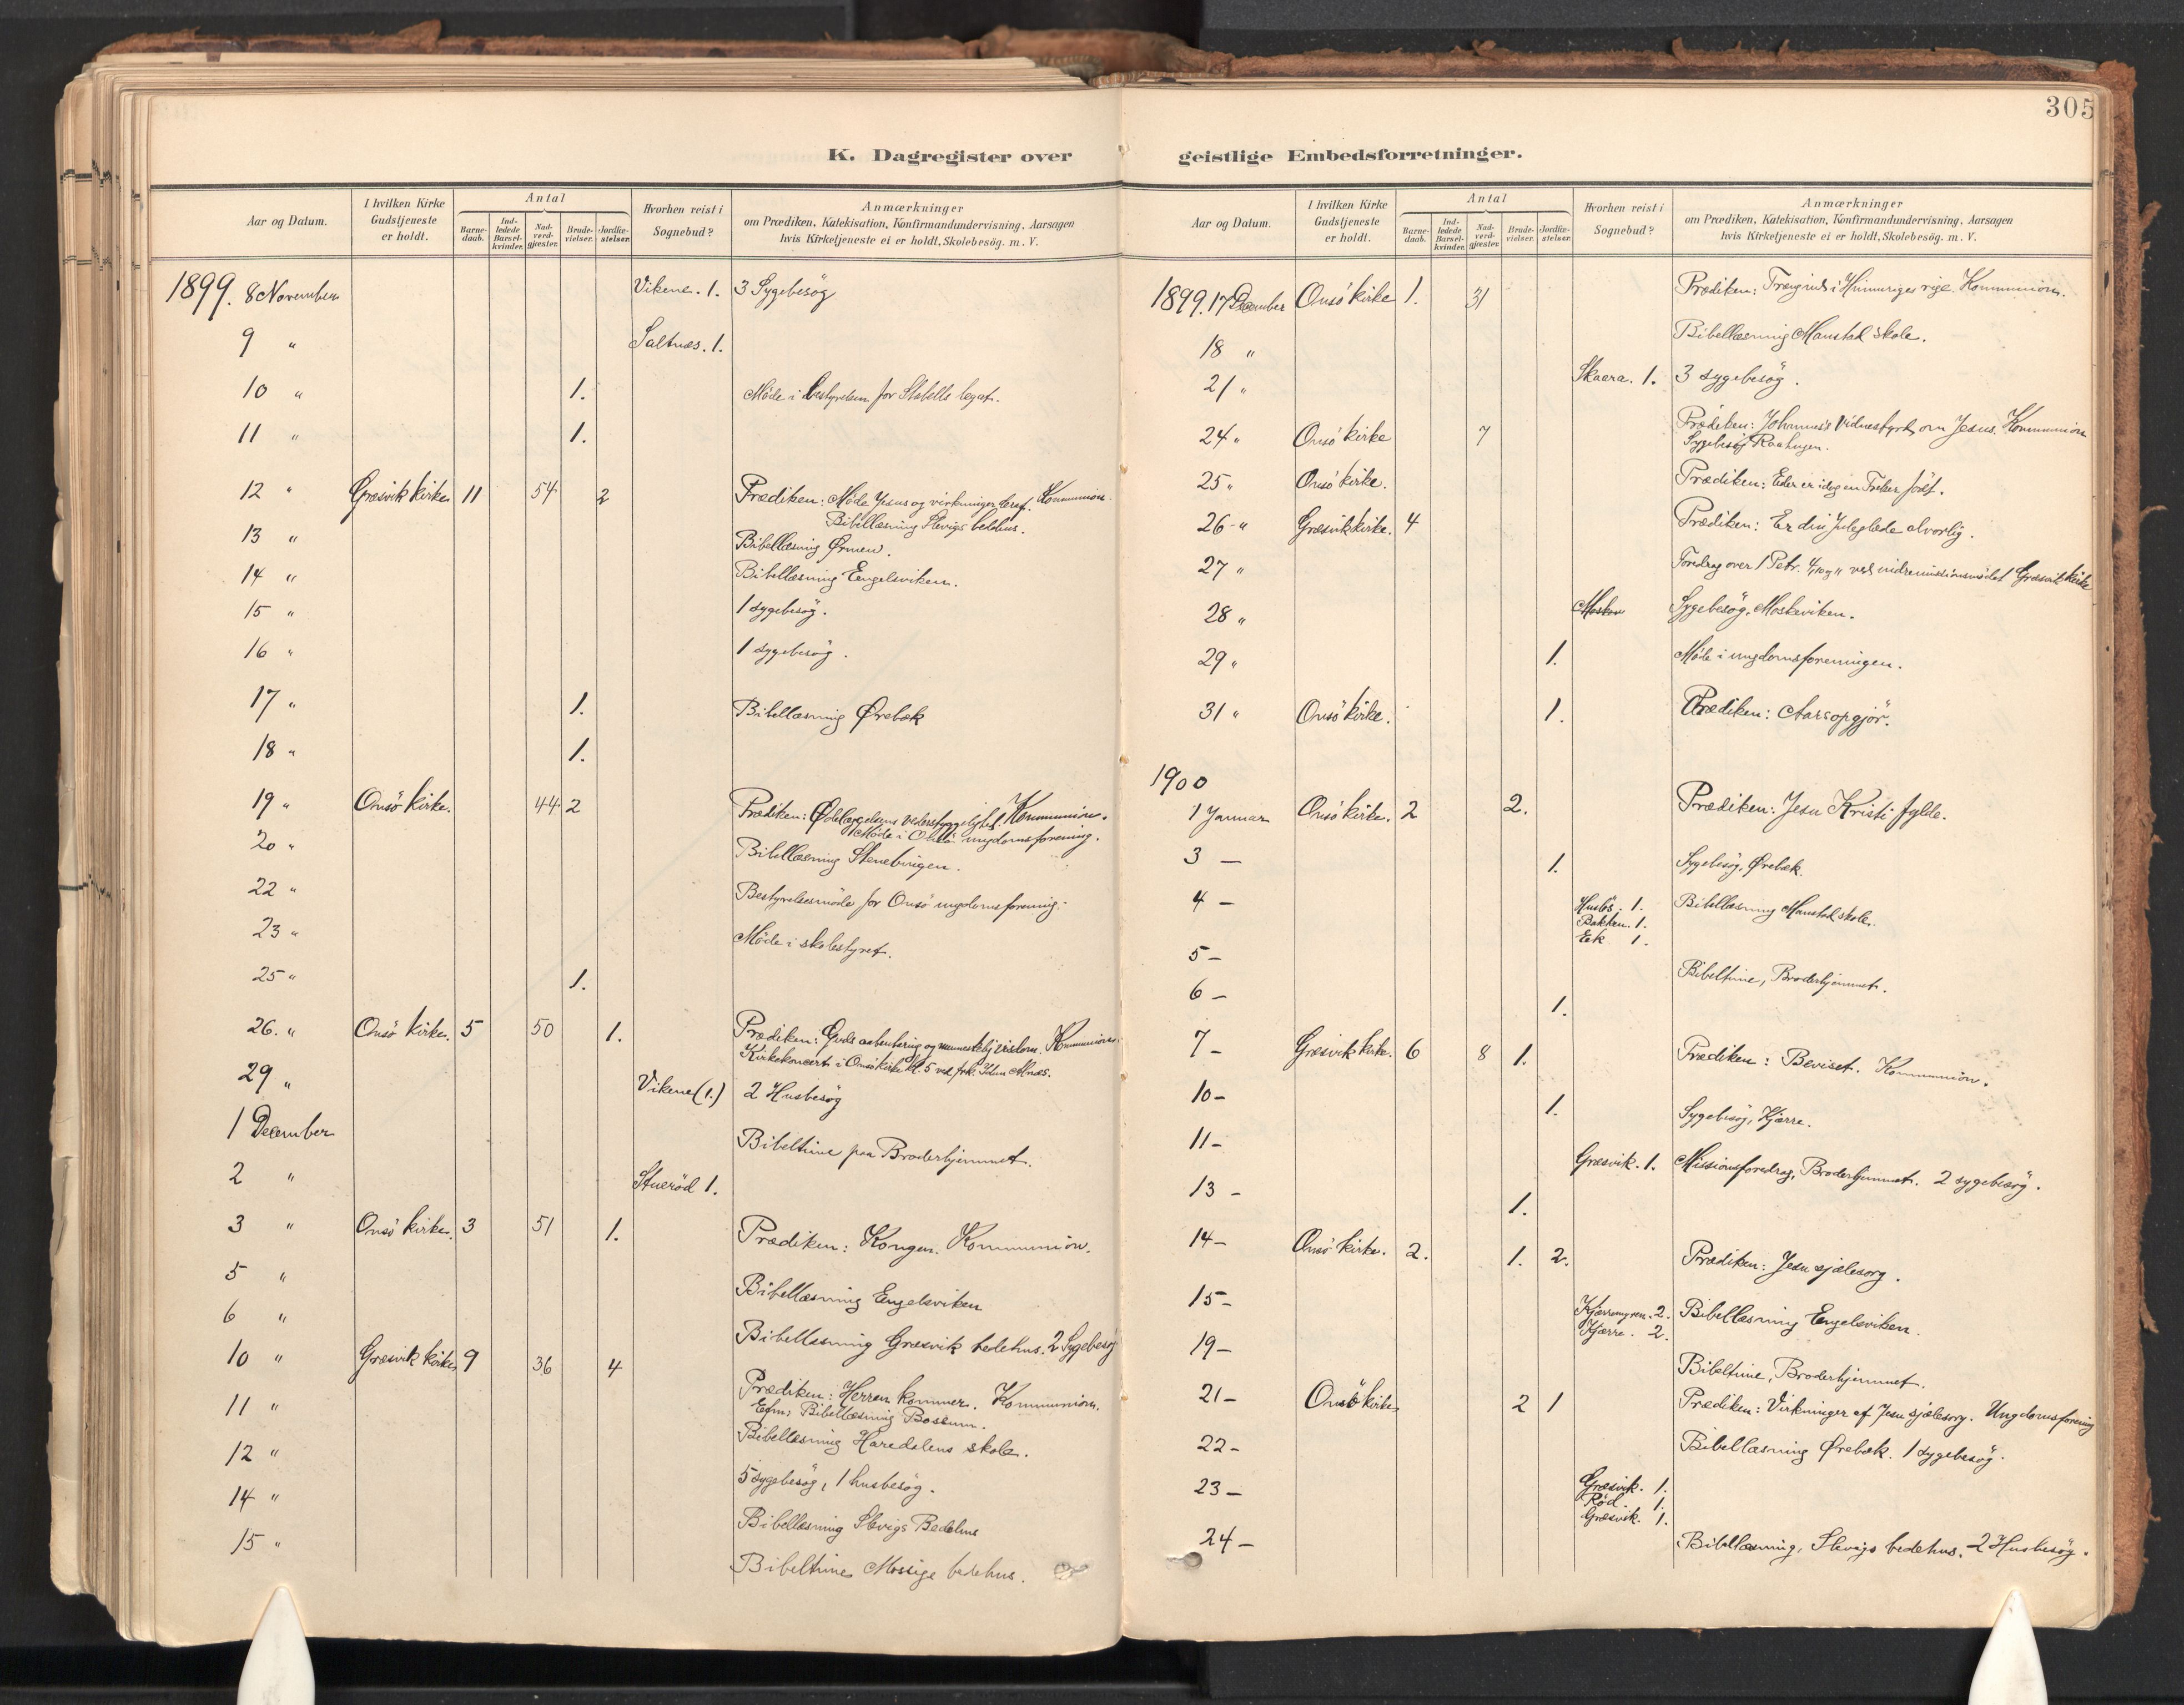 305
K. Dagregister over geistlige Embedsforretninger.
Aar og Datum.
I hvilken Kirke Gudstjeneste er holdt.
Antal
Barnedaab.
Indledede Barselkvinder.
Nadverdgjester.
Brudevielser.
Jordfæstelser.
Hvorhen reist i Sognebud?
Anmærkninger
om Prædiken, Katekisation, Konfirmandundervisning, Aarsagen
hvis Kirketjeneste ei er holdt, Skolebesøg. m. V.
1899. 8 November Vikene. 1. 3 Sygebesög
9 " Saltnæs. 1.
10 " 1. Møde i bestyrelsen for Stabells legat.
11 " 1.
12 " Græsvik kirke 11 54 2 Prædiken: Møde Jesus og virkninger deraf. Kommunion.
Bibellæsning Slevigs bedehus.
13 " Bibellæsning Ørmen.
14 " Bibellæsning Engelsviken.
15 " 1 sygebesög.
16 " 1 sygebesög.
17 " 1. Bibellæsning Ørebæk
18 " 1.
19 " Onsö kirke. 44 2 Prædiken: Ødelæggelsens vederstyggelighed. Kommunion.
Møde i Onsö ungdomsforening.
20 " Bibellæsning Stenebingen.
22 " Bestyrelsesmöde for Onsö ungdomsforening.
23 " Möde i skolestyret.
25 " 1.
26. " Onsö kirke. 5 50 1. Prædiken: Guds aabenbaring og menneskelig visdom. Kommunion.
Kirkekoncert i Onsö kirke kl. 5 ved frk.
29 " Vikene (1.) 2 Husbesög
1 December Bibeltime paa Broderhjemmet.
2 " Stueröd 1.
3 " Onsö kirke. 3 51 1. Prædiken: Kongen. Kommunion.
5 " Bibellæsning Engelsviken
6 " Bibellæsning Græsvik bedehus. 2 Sygebesög
10 " Græsvik kirke 9 36 4 Prædiken: Herren kommer. Kommunion.
Efm: Bibellæsning Bossum.
11 " Bibellæsning Haredalens skole.
12 " 5 sygebesög, 1 husbesög.
14 " Bibellæsning Slevigs Bedehus
15 " Bibeltime Mossige bedehus.
Aar og Datum.
I hvilken Kirke Gudstjeneste er holdt.
Antal
Barnedaab.
Indledede Barselkvinder.
Nadverdgjester.
Brudevielser.
Jordfæstelser.
Hvorhen reist i Sognebud?
Anmærkninger
om Prædiken, Katekisation, Konfirmandundervisning, Aarsagen
hvis Kirketjeneste ei er holdt, Skolebesøg. m. V.
1899. 17 December Onsö kirke 1. 31 Prædiken: i Himmeriges rige. Kommunion.
18 " Bibellæsning Manstad skole.
21 " Skaara. 1. 3 sygebesög.
24 " Onsö kirke 7 Prædiken: Johannes's Vidnesbyrd om Jesus. Kommunion
Sygebesög Raahugen.
25 " Onsö kirke. Prædiken: Eder er idag en Frelser födt.
26 " Græsvik kirke. 4 Prædiken: Er din juleglæde alvorlig.
27 " Foredrag over 1 Petr. 4,10 og 11 ved indremissionsmödet Græsvik kirke
28 " Mosken Sygebesög. Moskeviken.
29 " 1. Møde i ungdomsforeningen.
31 " Onsö kirke. 1. Prædiken: Aarsopgjör.
1900
1 Januar Onsö kirke. 2 2. Prædiken: Jesu Kristi fylde.
3 — 1. Sygebesög, Ørebæk.
4 — Huslös. 1. Bibellæsning Manstad skole.
Bakken. 1.
Eek 1.
5 — Bibeltime, Broderhjemmet.
6 — 1.
7 — Græsvik kirke. 6 8 1. Prædiken: Beviset. Kommunion.
10 — 1. Sygebesög, Kjærre.
11 — Græsvik. 1. Missionsforedrag, Broderhjemmet. 2 sygebesög.
13 — 1.
14 — Onsö kirke. 2. 1. 2. Prædiken: Jesu sjælesorg.
15 — Kjærremyren. 2. Bibellæsning Engelsviken.
Kjærre. 2.
19 — Bibeltime, Broderhjemmet.
21 — Onsö kirke 2 1 Prædiken: Virkninger af Jesu sjælesorg. Ungdomsforening
22 — Bibellæsning Ørebæk. 1 sygebesög.
23 — Græsvik. 1.
Röd. 1.
Græsvik. 1.
24 — Bibellæsning, Slevigs bedehus. 2 Husbesög.